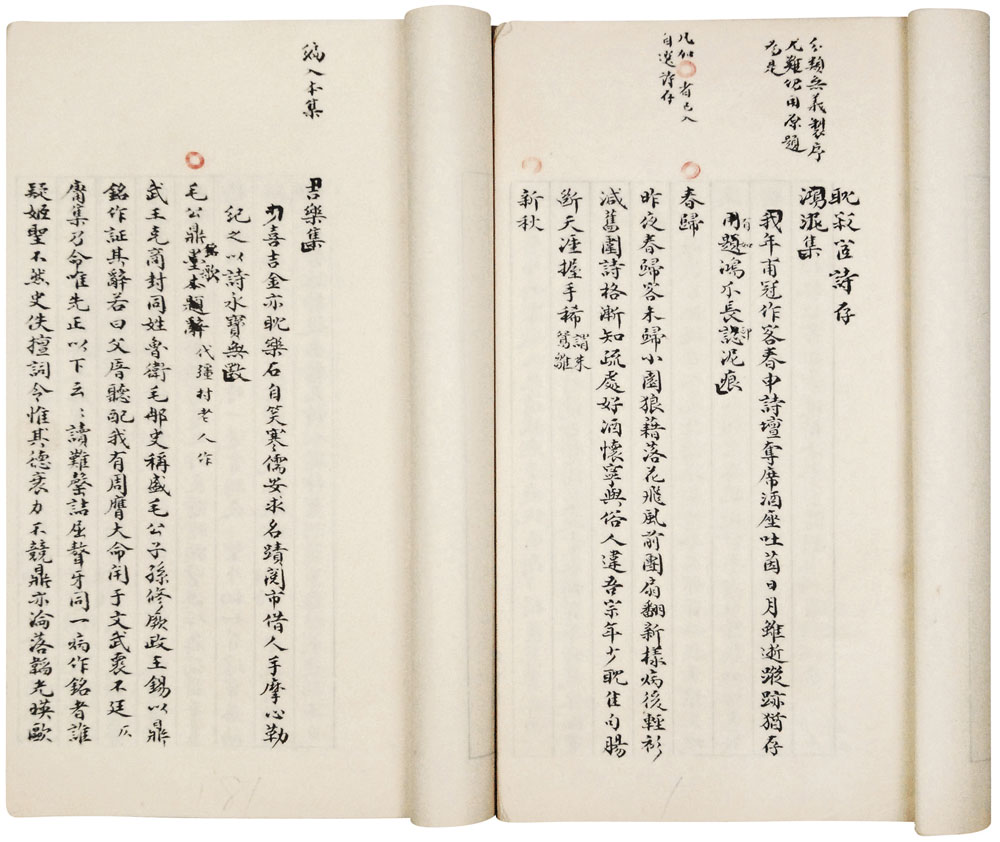 分類無義製序
尤難仍用原題
為是
耽寂宧詩存
鴻泥集
我年甫冠作客春申詩壇奪席酒座吐茵日月雖逝蹤跡猶存
用題鴻爪長認泥痕
凡如○者已入
自選詩存
春歸
昨夜春歸客未歸小園狼藉落花飛風前團扇翻新樣病後輕衫
減舊圍詩格漸知疏處好酒懷寧與俗人違吾宗年少耽佳句腸
斷天涯握手稀
謂來
鴛雛
新秋
編入本集
吉樂集
喜吉金亦耽樂石自笑寒儒安求名蹟閱市借人手摩心勒
紀之以詩永寶無斁
毛公鼎墨本題辭
歌
代彊村老人作
武王克商封同姓魯衛毛郍史稱盛毛公子孫修厥政王錫以鼎
銘作証其辭若曰父厝聽配我有周膺大命用于文武裹不廷
庸集乃命唯先正以下云〻讀難罄詰屈聱牙同一病作銘者誰
疑姬聖不然史佚擅詞令惟其德衰力不競鼎亦淪落韜光暎歐